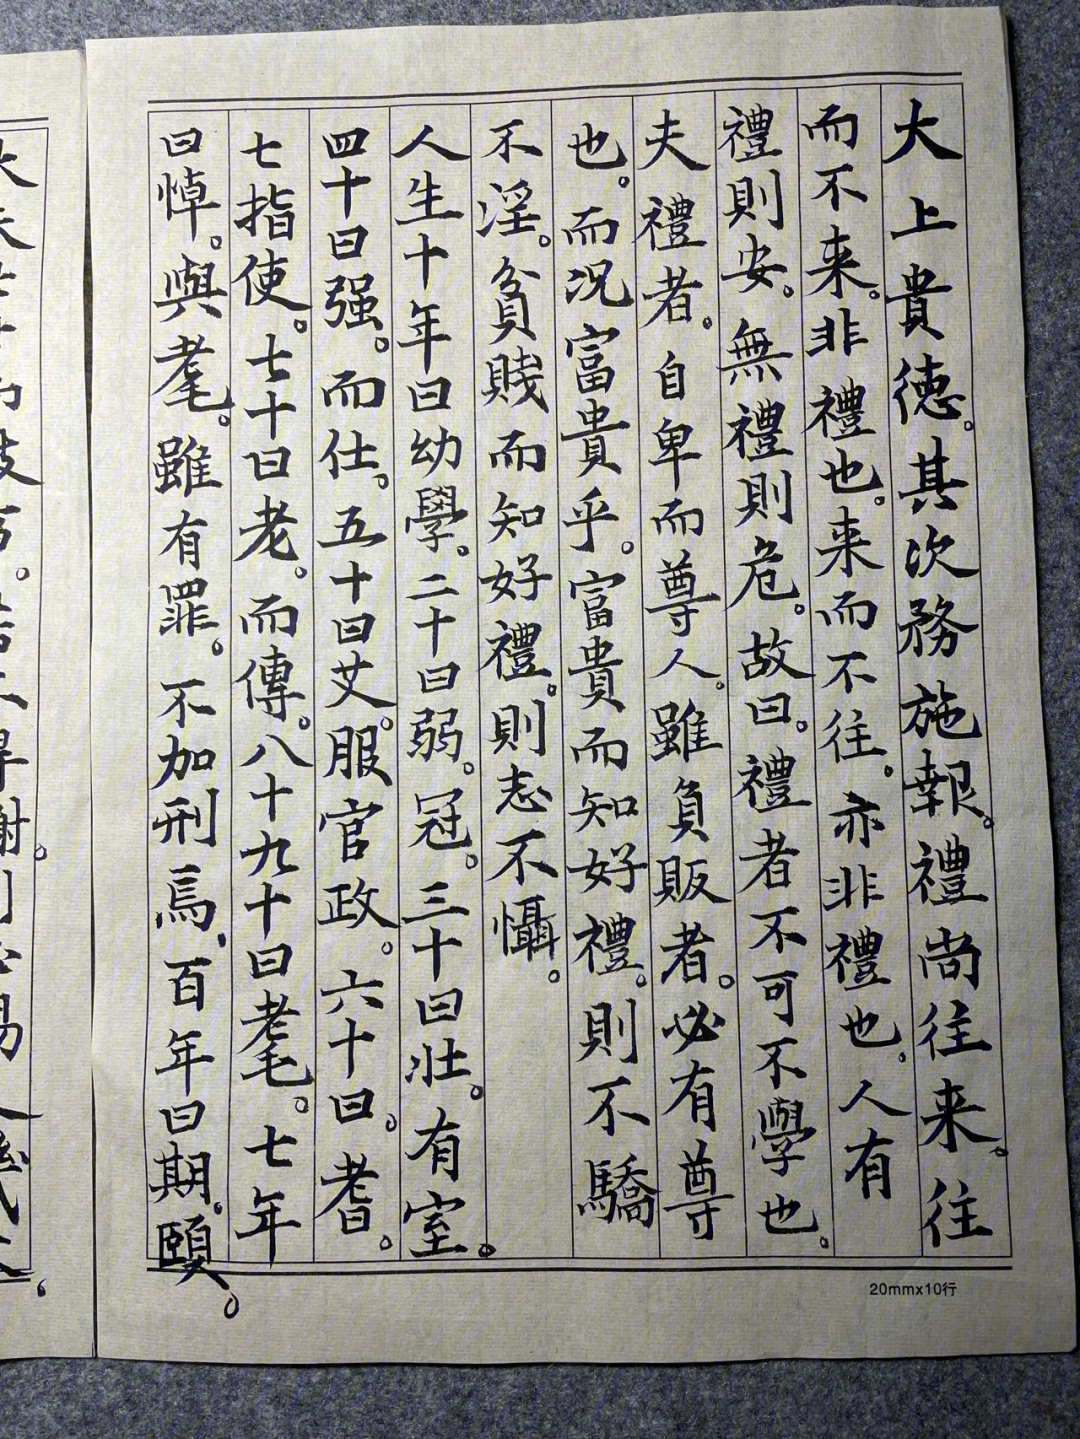 大上貴徳。其次務施報。禮尚往来。往
而不来。非禮也。来而不往。亦非禮也。人有
禮則安。無禮則危。故曰。禮者不可不學也。
夫禮者。自卑而尊人。雖負販者。必有尊
也。而况富貴乎。富貴而知好禮。則不驕
不淫。貧賎而知好禮。則志不懾。
人生十年曰幼學。二十曰弱。冠。三十曰壯。有室。
四十曰强。而仕。五十曰艾。服官政。六十曰。耆。
七指使。七十曰老。而傳。八十九十曰耄。七年
曰悼。與耄。雖有罪。不加刑焉、百年曰期。頤。
20mmx10行